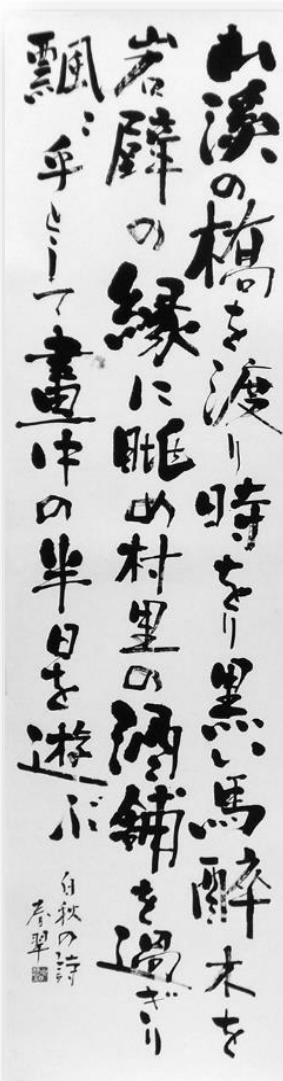 山溪の橋を渡り時をり黒い馬醉木を
岩壁の縁に眺め村里の酒舗を過ぎり
飄々乎として畫中の半日を遊ぶ
白秋の詩
春翠